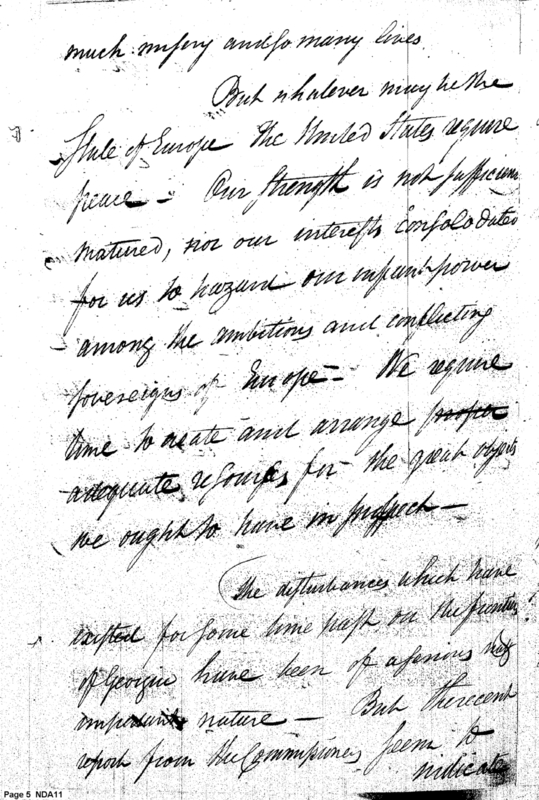 much misery and so many lives
But whatever may be the
State of Europe the United States require
peace – Our Strength is not sufficien
matured, nor our interests consolodated
for us to hazard our infant power
among the ambitious and conflicting
sovereigns of Europe – We require
time to create and arrange proper
adequate resources for the great objects
we ought to have in prospect –
The disturbances which have
existed for some time past on the frontiers
of Georgia have been of a serious
important nature – But the recent
report from the Commissioners seem to
indicate
Page 5 NDA11